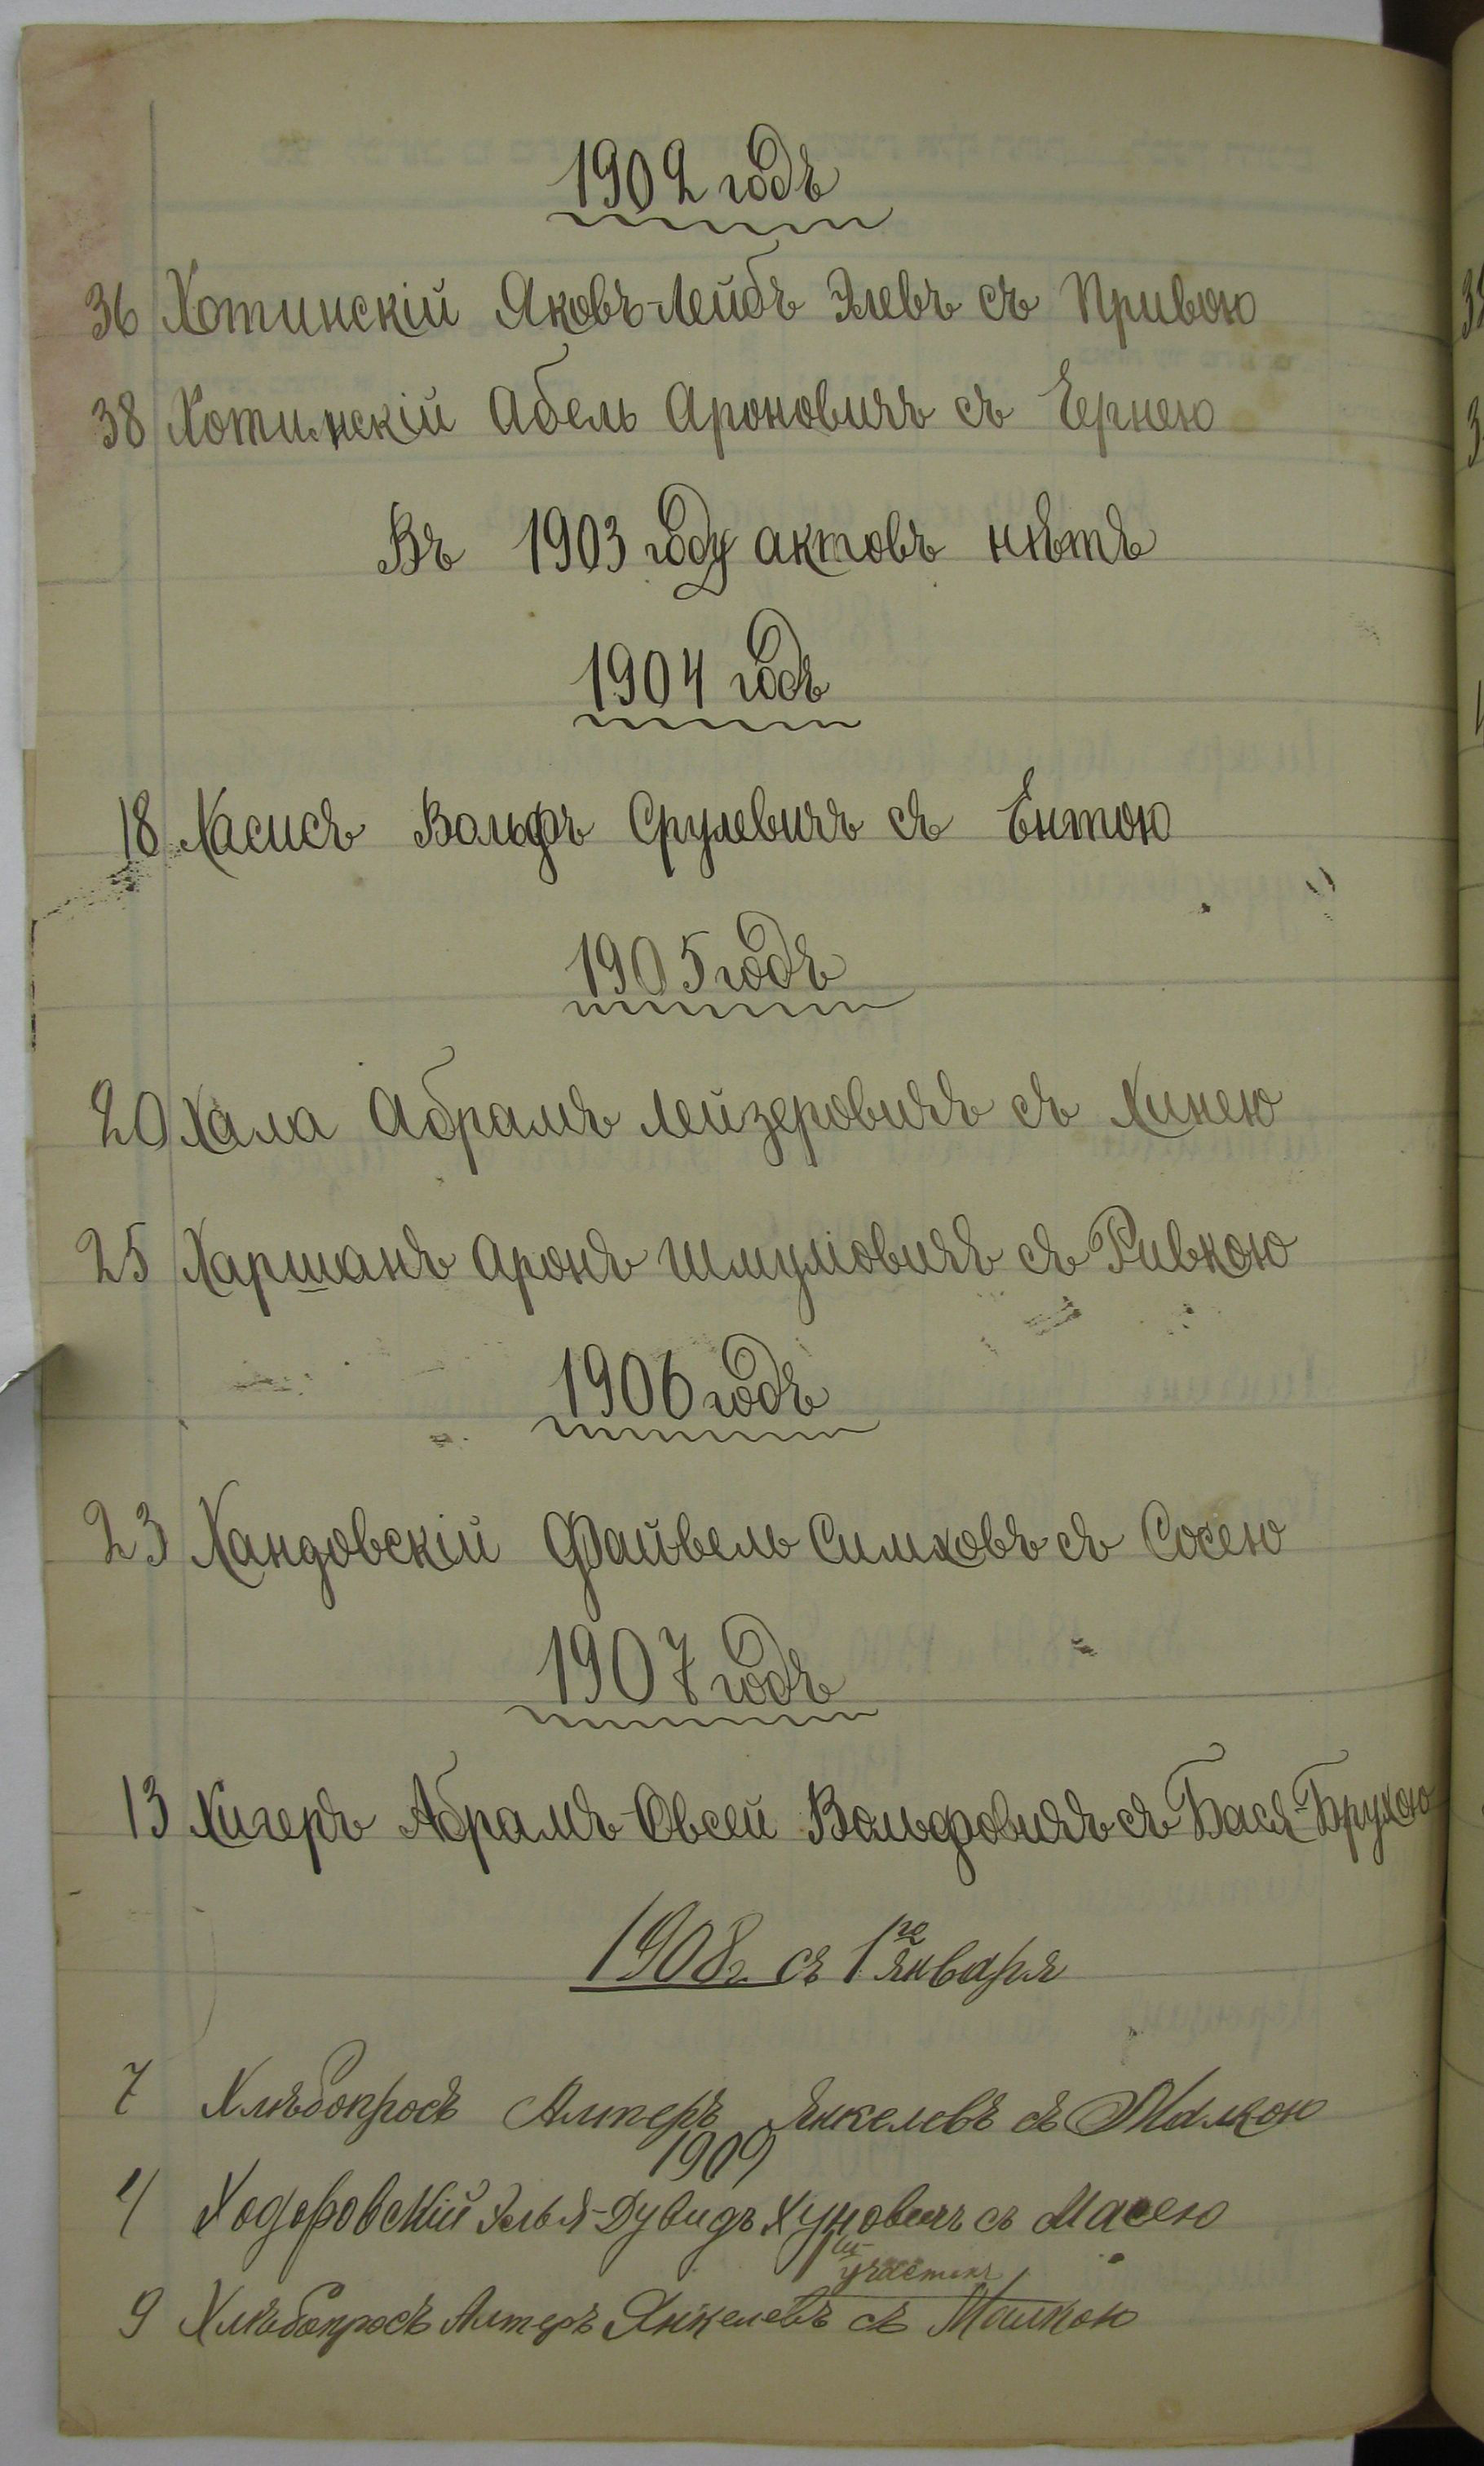 1902 годъ
36 Хотинскій Яковъ-Лейбъ Элевъ съ Привою
38 Хотинскій Абель Ароновичъ съ Ернею
Въ 1903 году актовъ нѣтъ
1904 годъ
18 Хасисъ Вольфъ Срулевичъ съ Ентою
1905 годъ
20 Хала Абрамъ Лейзеровичъ съ Хинею
25 Харшанъ Аронъ Шмуліовичъ съ Ривкою
1906 годъ
23 Хандовскій Файвель Симховъ съ Сосею
1907 годъ
13 Хигеръ Абрамъ-Овсей Вольфовичъ съ Бася-Брухою
1908 г. съ 1го января
7 Хлѣбопросъ Алтеръ Янкелевъ съ Малкою
1909
4 Ходоровскій Элья-Дувидъ Хуновичъ съ Масею
1й участокъ
9 Хлѣбопросъ Алтеръ Янкелевъ съ Малкою